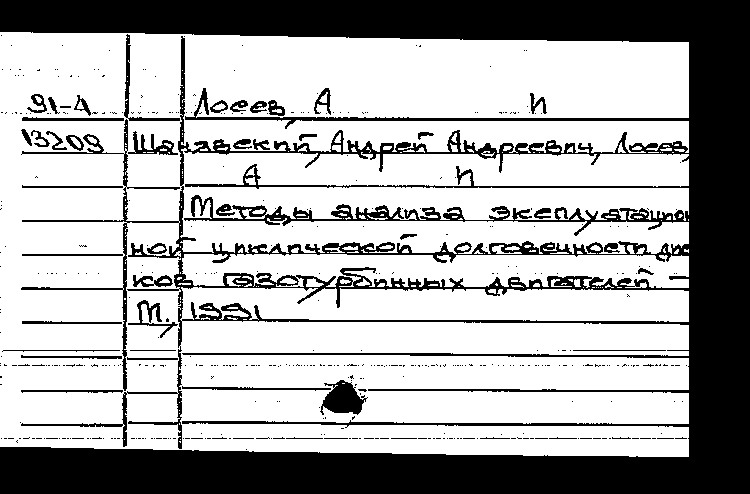 91-4 Лосев, А И
13209 Шанявский, Андрей Андреевич, Лосев,
А И
Методы анализа эксплуатацион
ной циклической долговечности дис
ков газотурбинных двигателей –
М., 1991